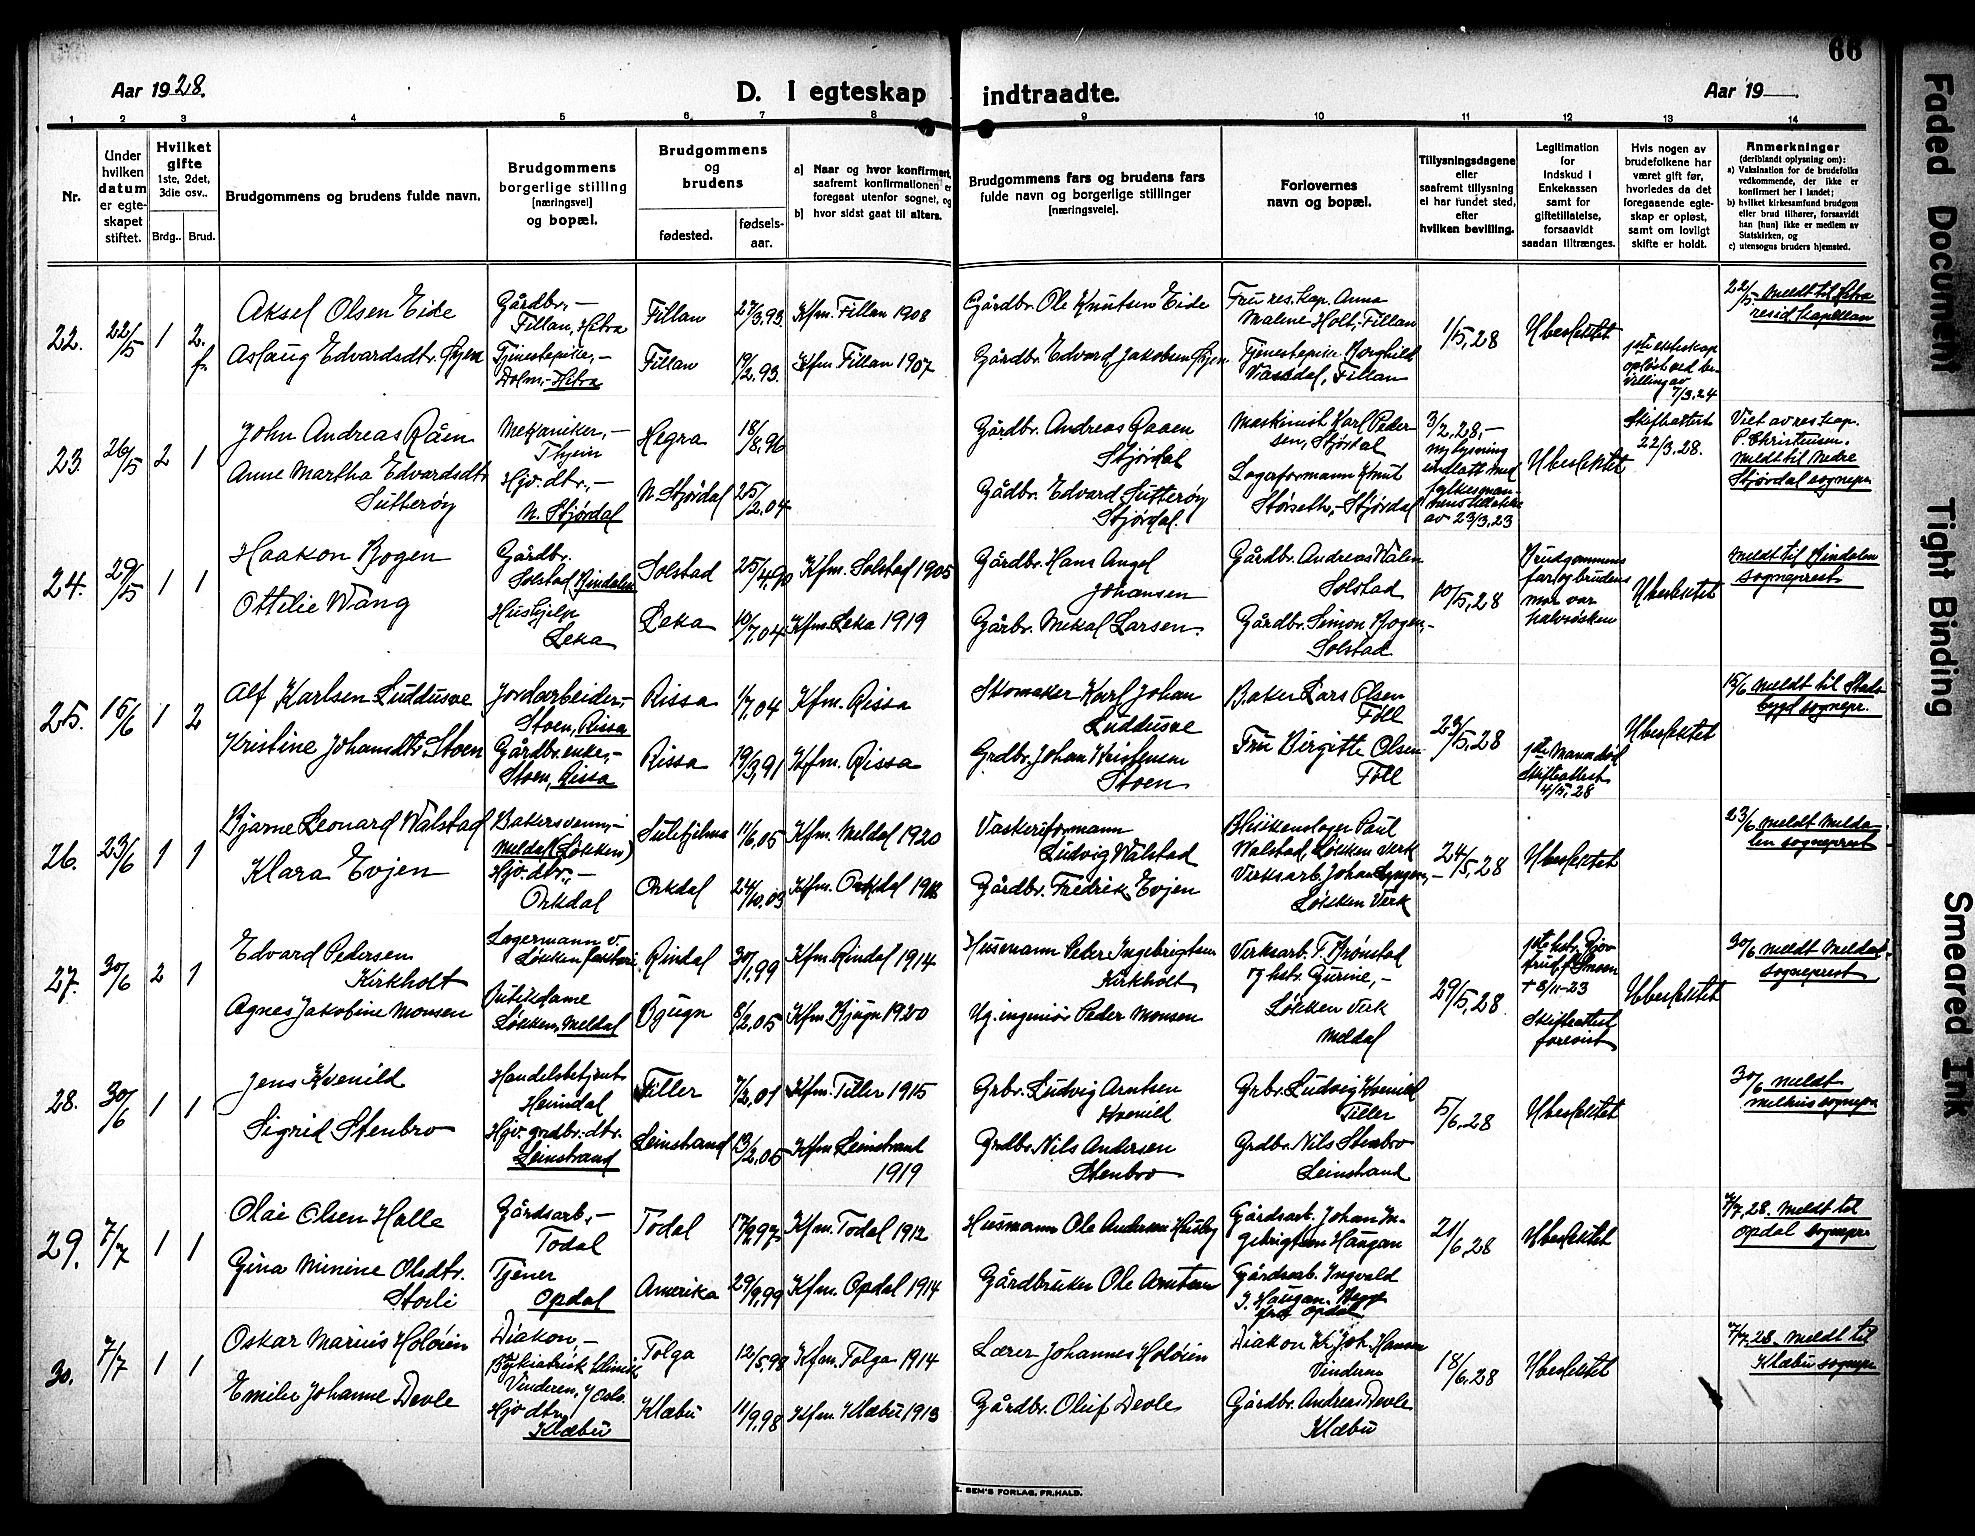 66
Aar 1928.
D. I egteskap indtraadte.
Aar 19
1 2 3 4 5 6 7 8 9 10 11 12 13 14
Nr.
Under hvilken datum er egteskapet stiftet.
Hvilket gifte 1ste, 2det, 3die osv..
Brdg.. Brud.
Brudgommens og brudens fulde navn.
Brudgommens borgerlige stilling [næringsvei] og bopæl.
Brudgommens og brudens
fødested.
fødsels-aar.
a) Naar og hvor konfirmert, saafremt konfirmationen er foregaat utenfor sognet, og
b) hvor sidst gaat til alters.
Brudgommens fars og brudens fars fulde navn og borgerlige stillinger [næringsveie].
Forlovernes navn og bopæl.
Tillysningsdagene eller saafremt tillysning ei har fundet sted, efter hvilken bevilling.
Legitimation for indskud i Enkekassen samt for giftetillatelse, forsaavidt saadan tiltrænges.
Hvis nogen av brudefolkene har været gift før, hvorledes da det foregaaende egteskap er opløst, samt om lovligt skifte er holdt.
Anmerkninger
(deriblandt oplysning om):
a) Vaksination for de brudefolks vedkommende, der ikke er konfirmert her i landet;
b) hvilket kirkesamfund brudgom eller brud tilhører, forsaavidt han [hun] ikke er medlem av Statskirken, og
c) utensogns bruders hjemsted.
22. 22/5 1 2. f.
Aksel Olsen Eide
Aslaug Edvardsdtr. Øyen
Gårdbr., –
Fillan, Hitra
Tjenestepike, –
Dolm, – Hitra
Fillan 27/3.93. Kfm. Fillan 1908
Fillan 19/2.93. Kfm Fillan 1907
Gårdbr. Ole Knutsen Eide
Gårdbr. Edvard Jakobsen Øyen
Fru res. kap. Anna
Maline Holt, Fillan
Tjenestepike Borghild
Vasdal, Fillan
1/5, 28
Ubeslektet
1ste ekteskap
opløst ved be-
villing av
7/3.24
22/5 meldt til Hitra
resid. kapellan
23. 26/5 2 1
John Andreas Råen
Anne Martha Edvardsdtr
Sutterøy
Mekaniker, –
Hjv. dtr., –
N. Stjørdal
Hegra 18/8.96
N. Stjørdal 25/2.04
Gårdbr. Andreas Raaen
Stjørdal
Gådbr. Edvard Sutterøy
Stjørdal.
Maskinist Karl Peder-
sen, Stjørdal
Lagerformann Knut
Størseth, – Stjørdal
3/2, 28, –
ny lysning
undlatt med
fylkesman-
nens tillatelse
av 23/3, 23
Ubeslektet
Skifteattest
22/3. 28.
Viet av res. kap.
P. Christensen.
Meldt til Nedre
Stjørdal sognepr.
24. 29/5 1 1
Haakon Bogen
Ottilie Wang
Gårdbr.
Solstad, Bindalen
Hushjelp
Leka
Solstad 25/4.90 Kfm. Solstad 1905
Leka 10/7.04 Kfm. Leka 1919
Gårdbr. Hans Angel
Johansen
Gårbr. Mekal Larsen.
Gårdbr. Andreas Walen
Solstad
Gårdbr. Simon Bogen, –
Solstad
10/5, 28
Brudgommens
far og brudens
mor var
halvsøsken
Ubeslektet
Meldt til Bindalen
sogneprest
25. 15/6 1 2
Alf Karlsen Luddusve
Kristine Johansdtr. Stoen
Jordarbeider, –
Stoen, Rissa
Gårdbr. enke, –
Stoen, Rissa
Rissa 1/7, 04 Kfm. Rissa
Rissa 19/3, 91 Kfm. Rissa
Skomaker Karl Johan
Luddusve
Grdbr. Johan Kristensen
Stoen
Baker Lars Olsen
Foll
Fru Birgitte Olsen
Foll
23/5, 28
1ste Mann død
Skifteattest
4/5, 28
Ubeslektet
15/6 meldt til Stads-
bygd sognepr.
26. 23/6 1 1
Bjarne Leonard Wålstad
Klara Evjen
Bakersvenn, –
Meldal (Løkken)
Hjv. dtr., –
Orkdal
Sulitjelma 11/6, 05 Kfm. Meldal 1920
Orkdal 24/10, 03 Kfm. Orkdal 1918
Vaskeriformann
Ludvig Walstad
Gårdbr. Fredrik Evjen
Blikkenslager Paul
Walstad, Løkken Verk
Virksarb. Johan Lyngen, –
Løkken Verk
24/5, 28
Ubeslektet
23/6 meldt Melda-
len sogneprest
27. 30/6 2 1
Edvard Pedersen
Kirkholt
Agnes Jakobine Monsen
Lagermann v.
Løkken
Butikdame
Løkken, Meldal
Rindal 30/1, 99 Kfm. Rindal 1914
Bjugn 8/2, 05 Kfm Bjugn 1920
Husmann Peter Ingebrigtsen
Kirkholt
Ug. ingeniør Peder Monsen
Virksarb. T. Brønstad
og hstr. Gurine, –
Løkken Verk
Meldal
29/5, 28
1ste hstr. Gjør-
trud f. Smoen
† 3/11-23
Skifteattest
forevist
Ubeslektet
30/6 meldt Meldal-
sogneprest
28. 30/6 1 1
Jens Kvenild
Sigrid Stenbro
Handelsbetjent
Heimdal
Hjv. grdbr. dtr.
Leinstrand
Tiller 7/2, 01 Kfm. Tiller 1915
Leinstrand 13/2, 05 Kfm Leinstrand
1919
Grbr. Ludvig Arntsen
Kvenild
Grdbr. Nils Andersen
Stenbro
Grbr. Ludvig Kvenild
Tiller
Grdbr. Nils Stenbro
Leinstrand
5/6, 28
Ubeslektet
30/6 meldt
Melhus sognepr.
29. 7/7 1 1
Olai Olsen Halle
Gina Minine Olsdtr.
Storli
Gårdsarb., –
Todal
Tjener
Opdal
Todal 17/9.97 Kfm. Todal 1912
Amerika 29/9, 99 Kfm. Opdal 1914
Husmann Ole Andersen Husby
Gårdbruker Ole Arntsen
Gårdsarb. Johan In-
gebrigtsen Haugan
Gårdsarb. Ingvald
J. Haugan. Begge
fra Opdal
21/6, 28
Ubeslektet
7/7, 28. Meldt til
Opdal sognepr.
30. 7/7 1 1
Oskar Marius Holøien
Emilie Johanne Devle
Diakon, –
Psykiatrisk klinik
Vinderen, V. Oslo
Hjv dtr.
Klæbu
Tolga 12/5, 98 Kfm. Tolga 1914
Klæbu 11/9, 98 Kfm. Klæbu 1913
Lærer Johannes Holøien
Gårdbr. Oluf Devle
Diakon Kr. Joh. Hansen
Vinderen
Gårdbr. Andreas Devle
Klæbu
18/6, 28
Ubeslektet
7/7, 28. Meldt til
Klæbu sognepr.
E. SEM'S FORLAG, FR.HALD.
Faded Document
Tight Binding
Smeared Ink